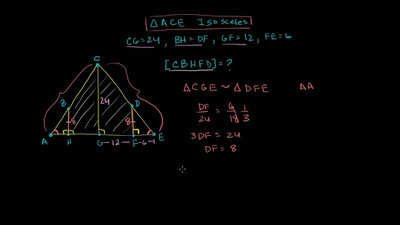 △ACE Isosceles
CG=24, BH=DF, GF=12, FE=6
[CBHFD]=?
△CGE ~ △DFE AA
DF/24 = 6/18 1/3
3DF = 24
DF = 8
C
24
B
D
8
8
A H G -12- F -6- E